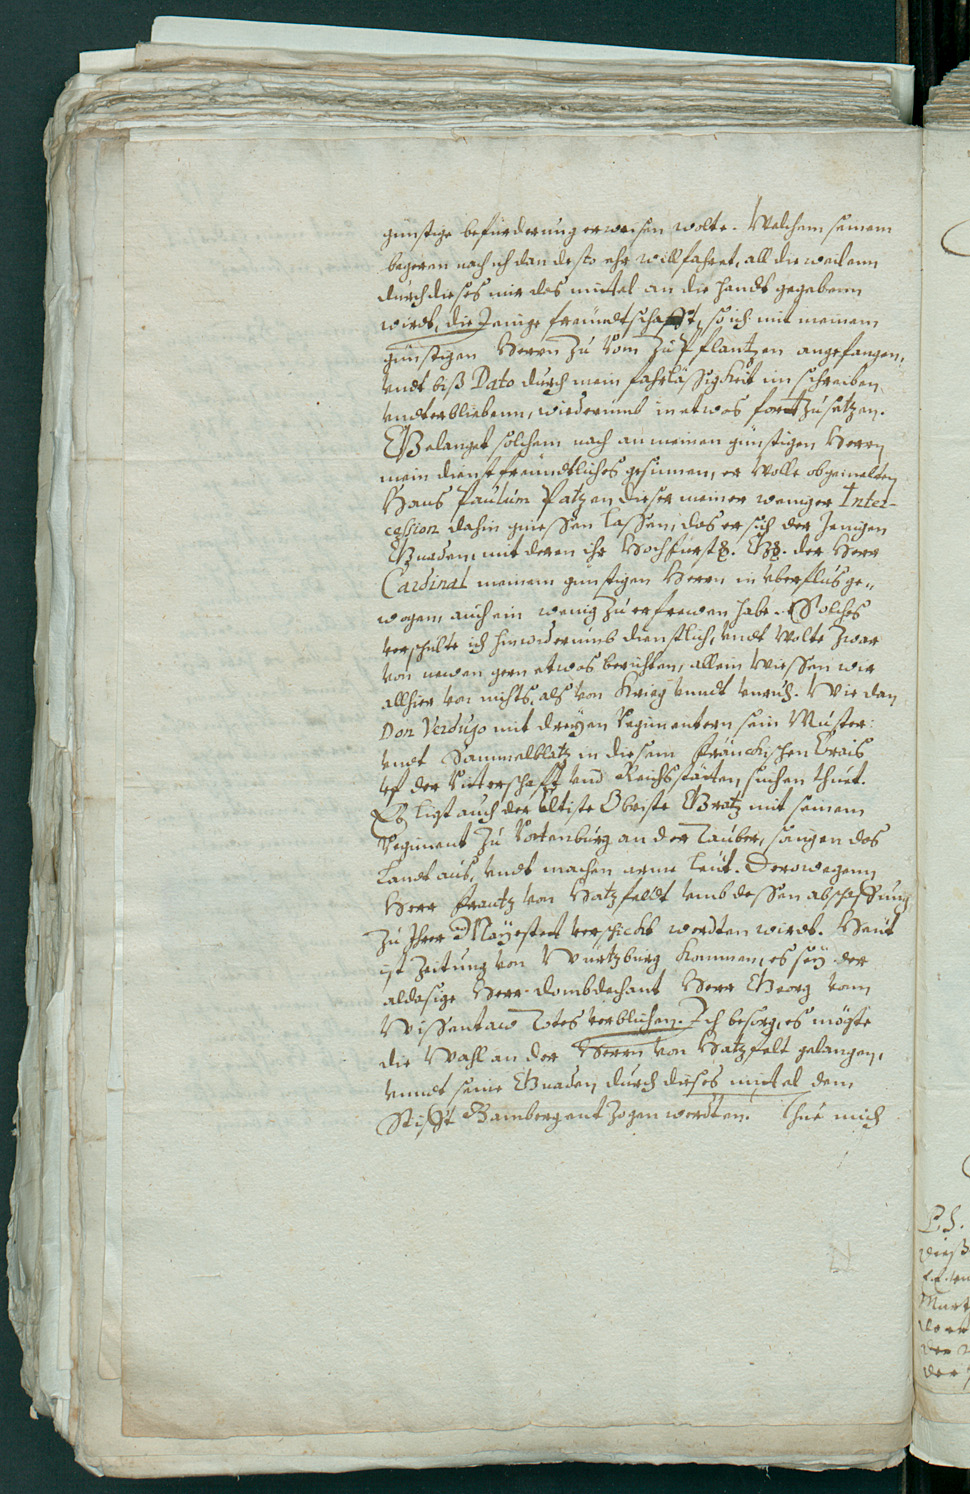 günstige befürderung erweisen wolte. Welchem seinem
begeren nach ich dan desto ehr willfahret, all die weilenn
durch dieses mir das mittel an die handt gegebenn
wirdt, die Jenige freündtschafft, so ich mit meinem
günstigen Herrn zu Rom zu Pflantzen angefangen,
vndt biß Dato durch mein fahrläßigkeit im schreiben
vndterbliebenn, wiederümb in etwas fortzusetzen.
Gelanget solchem nach an meinen günstigen Herrn
mein dienstfreündtliches gesinnen, er wolle obgemelten
Hans Paulum Patzen dieser meiner weniger Inter-
cession dahin genießen laßen, das er sich der Jenigen
Gnaden, mit deren ihr Hochfürstl. Gn. der Herr
Cardinal meinem günstigen Herrn in vberflus ge-
wogen, auch ein wenig zu erfrewen habe. Solches
verschulte ich hinwiderümb dienstlich, vndt wolte zwar
von newen gern etwas berichten, allein wießen wir
allhier von nichts, als von Krieg vnndt vnruh. Wie dan
Don Verdugo mit dreyen Regimentern sein Muster:
vndt Sammelblatz in diesem Fränckischen Crais
vf der Ritterschafft vnd Reichsstätten suchen thuet.
Es ligt auch der Obriste Gratz mit seinem
Regiment zu Rotenburg an der Tauber, saugen das
Landt aus, vndt machen arme leüt. Derowegenn
Herr Frantz von Hatzfeldt vmb deßen abschaffung
zu Ihrer Mayestet verschickt werdten wirdt. Heüt
ist Zeitung von Würtzburg kommen, es sey der
aldasige Herr Dombdechant Herr Georg vonn
Wisentaw Totes verblichen. Ich besorg, es mögte
die Wahl an der Herrn von Hatzfelt gelangen,
vnndt seine Gnaden durch dieses mittel dem
Stifft Bamberg entzogen werdten. Thue mich